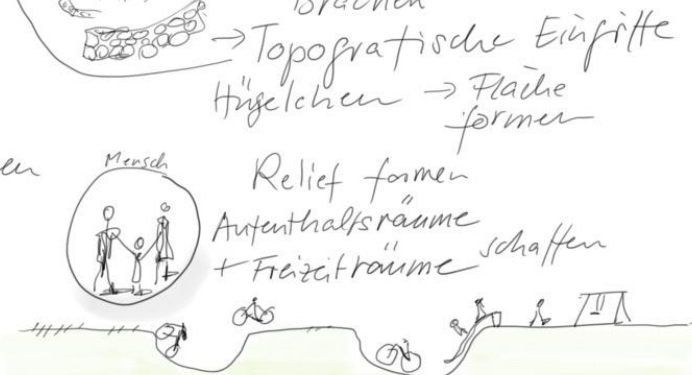 Brachen
→ Topografische Eingriffe
Hügelchen → Fläche
formen
en
Mensch
Relief formen
Aufenthaltsräume
+ Freizeiträume schaffen